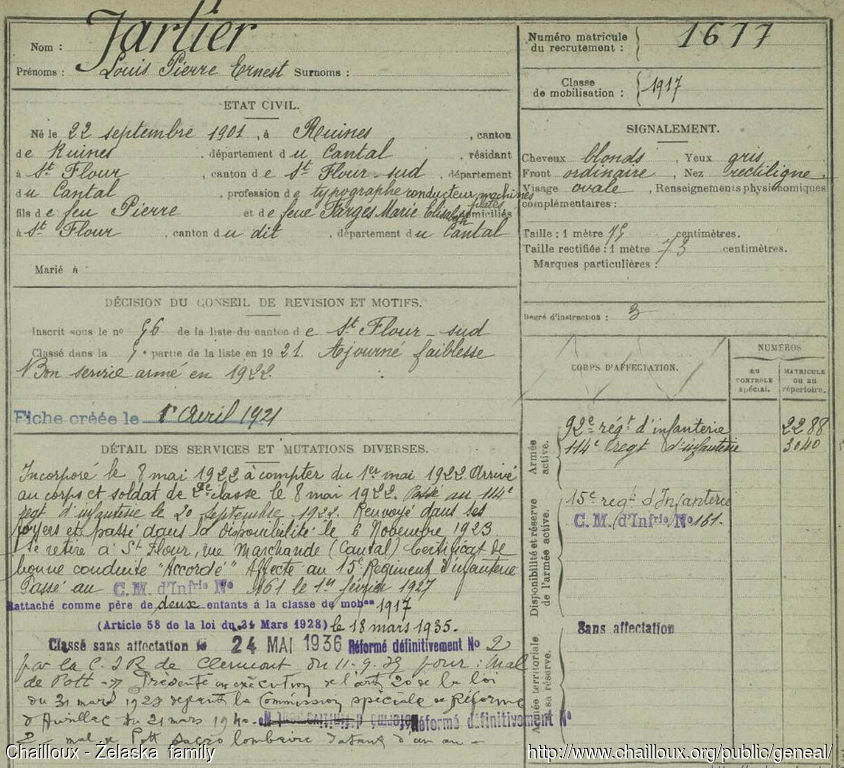 Nom : Jarlier
Prénoms : Louis Pierre Ernest Surnoms :
ETAT CIVIL.
Né le 22 septembre 1901, à Ruines, canton
de Ruines, département du Cantal, résidant
à St Flour, canton de St Flour-sud, département
du Cantal, profession de typographe conducteur machines plates
fils de feu Pierre et de feue Farges Marie Elisabeth domiciliés
à St Flour, canton du dit, département du Cantal
Marié à
DÉCISION DU CONSEIL DE REVISION ET MOTIFS.
Inscrit sous le no 56 de la liste du canton de St Flour-sud
Classé dans la 5e partie de la liste en 1921. Ajourné faiblesse
Bon service armé en 1922.
Fiche créée le 1er Avril 1921
DÉTAIL DES SERVICES ET MUTATIONS DIVERSES.
Incorporé le 8 mai 1922 à compter du 1er mai 1922 Arrivé
au corps et soldat de 2e classe le 8 mai 1922. Passé au 114e
regt d'infanterie le 20 septembre 1922. Renvoyé dans ses
foyers et passé dans la disponibilité le 6 Novembre 1923
Se retire à St Flour, rue Marchande (Cantal) Certificat de
bonne conduite "Accordé" Affecté au 15e Régiment d'infanterie
Passé au C. M. d'Infrie No 161 le 1er février 1927
Rattaché comme père de deux enfants à la classe de mobon 1917
(Article 58 de la loi du 31 Mars 1928) le 18 mars 1935.
Classé sans affectation le 24 MAI 1936 Réformé définitivement No 2
par la C.S.R de Clermont du 11-9-39 pour : Mal
de Pott - Présenté en exécution de l'art 20 de la loi
du 31 mars 1928 devant la Commission spéciale de Réforme
d'Aurillac du 21 mars 1940 Réformé définitivement No
2 - mal de Pott sacro lombaire datant d'un an -
Numéro matricule
du recrutement : 1677
Classe
de mobilisation : 1917
SIGNALEMENT.
Cheveux blonds, Yeux gris
Front ordinaire, Nez rectiligne
Visage ovale, Renseignements physionomiques
complémentaires :
Taille : 1 mètre centimètres.
Taille rectifiée : 1 mètre 73 centimètres.
Marques particulières :
Degré d'instruction : 3
CORPS D'AFFECTATION.
NUMÉROS
AU CONTROLE SPÉCIAL.
MATRICULE OU AU RÉPERTOIRE.
Armée active.
92e régt d'infanterie 2288
114e regt d'infanterie 3040
Disponibilité et réserve de l'armée active.
15e regt d'Infanterie
C. M. d'Infrie No 161.
Armée territoriale et sa réserve.
Sans affectation
Chailloux - Želaska family
http://www.chailloux.org/public/geneal/